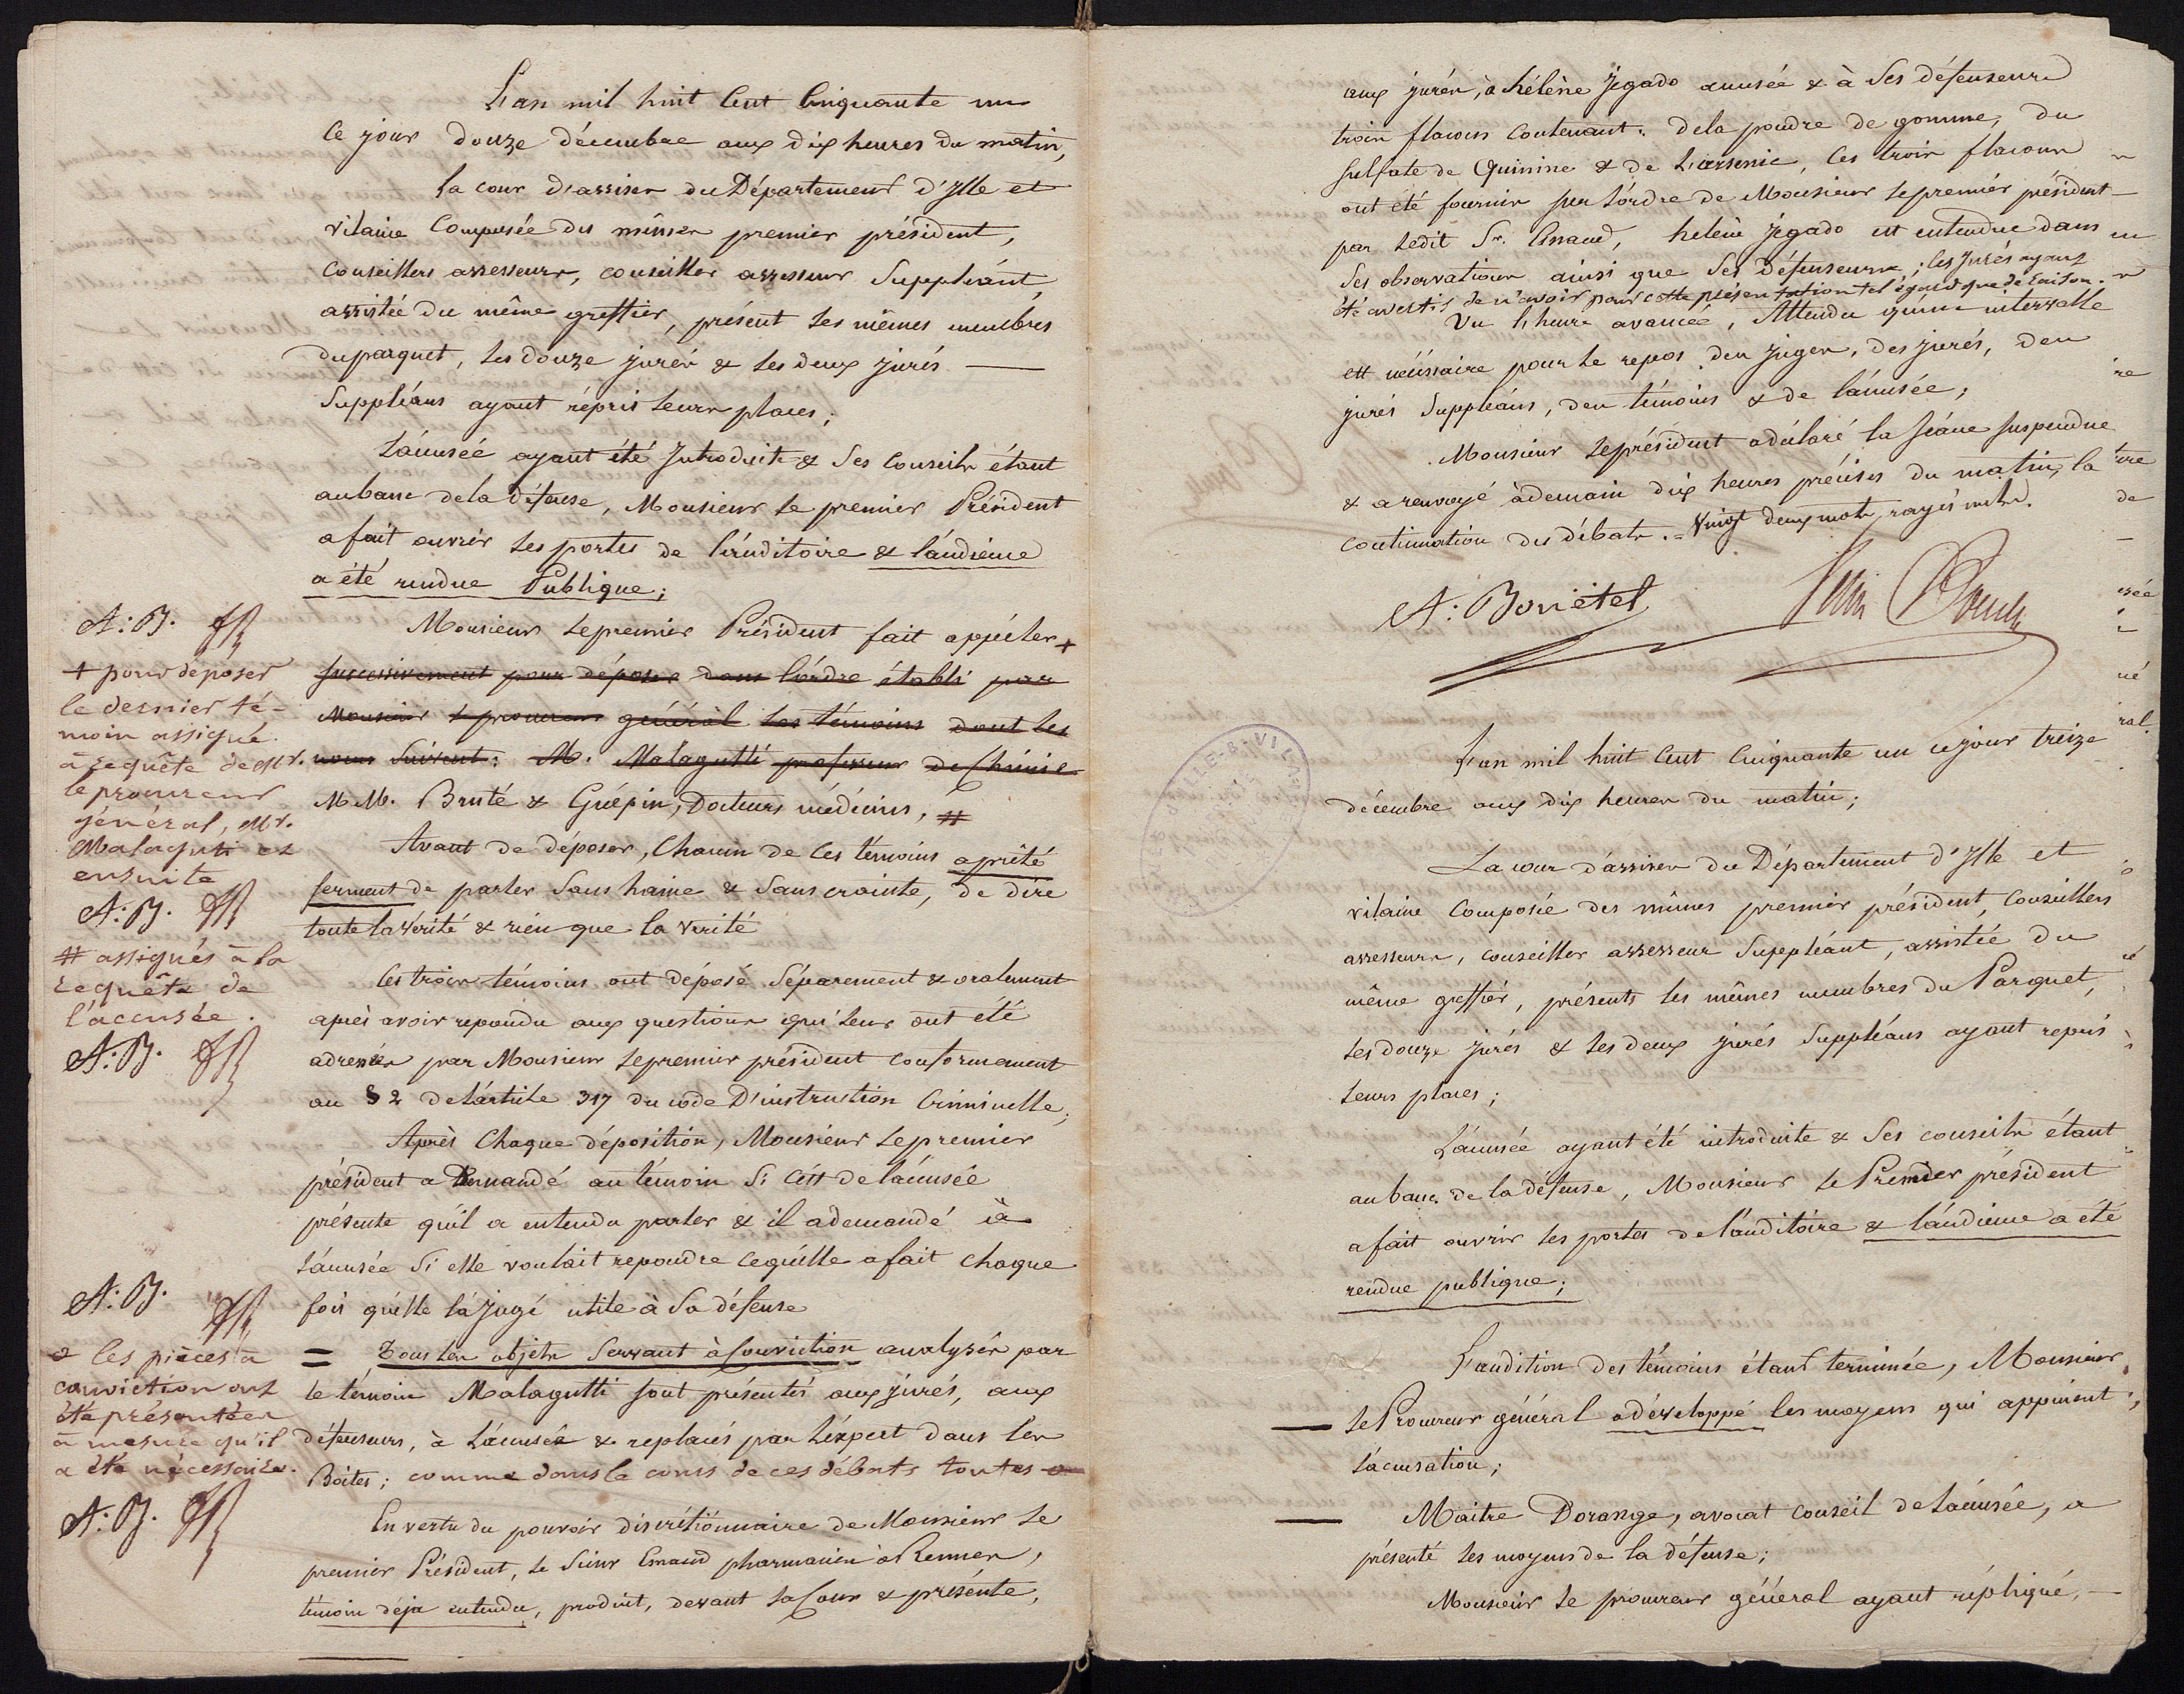 L'an mil huit Cent Cinquante un
Ce jour douze décembre aux dix heures du matin,
La cour d'assises du Département d'Ille et
vilaine Composée des mêmes premier président,
Conseillers assesseurs, conseiller assesseur Suppléant,
assistée du même greffier, présent les mêmes membres
du parquet, les douze jurés & les deux jurés
Suppléans ayant répris leurs places;
L'accusée ayant été Introduite & Ses Conseils étant
au banc de la défense, Monsieur le premier Président
a fait ouvrir les portes de l'auditoire & l'audience
a été rendue Publique;
Monsieur le premier Président fait appeler +
successivement pour déposer dans l'ordre établi par
Monsieur le procureur général les témoins dont les
noms Suivent: M. Malagutti professeur de Chimie
M.M. Bruté & Guépin, Docteurs médecins, #
Avant de déposer, Chacun de Ces témoins a prêté
serment de parler Sans haine & Sans crainte, de dire
toute la vérité & rien que la vérité
Ces trois témoins ont déposé Séparement & oralement
après avoir repondu aux questions qui leur ont été
adressées par Monsieur le premier président conformement
au § 2 de l'article 317 du code D'instruction Criminelle;
Après Chaque déposition, Monsieur le premier
président a Demandé au témoin Si C'est de l'accusée
présente qu'il a entendu parler & il a demandé à
l'accusée Si elle voulait repondre ce qu'elle a fait Chaque
fois qu'elle l'a Jugé utile à Sa défense
= Tous les objets Servant à Conviction analysés par
le témoin Malagutti sont présentés aux jurés, aux
défenseurs, à l'accusée & replacés par l'éxpert dans les
Boites; comme dans le cours de ces débats toutes
En vertu du pouvoir discrétionnaire de Monsieur le
premier Président, le Sieur Emaud pharmacien à Rennes,
témoin déja entendu, produit, devant la Cour & présente,
A:B.
+ pour déposer
le dernier té-
moin assigné
à requête de Mr.
le procureur
général, Mr.
Malaguti et
ensuite
A:B.
# assignés à la
requête de
l'accusée.
A:B.
A:B.
les pièces à
conviction ont
été présentées
à mesure qu'il
a été nécessaire.
A:B.
aux jurés, à hélène Jegado accusée & à Ses défenseurs
trois flacons Contenant: de la poudre de gomme, du
Sulfate de Quinine & de l'arsenic, Ces trois flacons
ont été fournis sur l'ordre de Monsieur le premier président
par ledit Sr. Emaud, helène Jégado est entendue dans
Ses observations ainsi que Ses Défenseurs; les jurés ayant
été avertis de n'avoir pour cette présentation tel égard que de raison.
Vu l'heure avancée, Attendu qu'une intervalle
est nécéssaire pour le repos des Juges, des jurés, des
jurés Suppléans, des témoins & de l'accusée;
Monsieur le président a déclaré la Séance suspendue
& a renvoyé à demain dix heures précises du matin, la
continuation des débats. = Vingt deux mots rayés nuls.
A: Boucetel
L'an mil huit Cent Cinquante un ce jour treize
décembre aux dix heures du matin;
La cour d'assises du Département d'Ille et
vilaine Composée des mêmes premier président, Conseillers
assesseurs, conseiller assesseur Suppléant, assistée du
même greffier, présents les mêmes membres du Parquet,
les douze jurés & les deux jurés Suppléans ayant repris
leurs places;
L'accusée ayant été introduite & Ses conseils étant
au banc de la défense, Monsieur le Premier président
a fait ouvrir les portes de l'auditoire & l'audience a été
rendue publique;
L'audition des témoins étant terminée, Monsieur
le Procureur général a développé les moyens qui appuient
l'accusation;
Maitre Dorange, avocat conseil de l'accusée, a
présenté les moyens de la défense;
Monsieur le procureur général ayant répliqué,